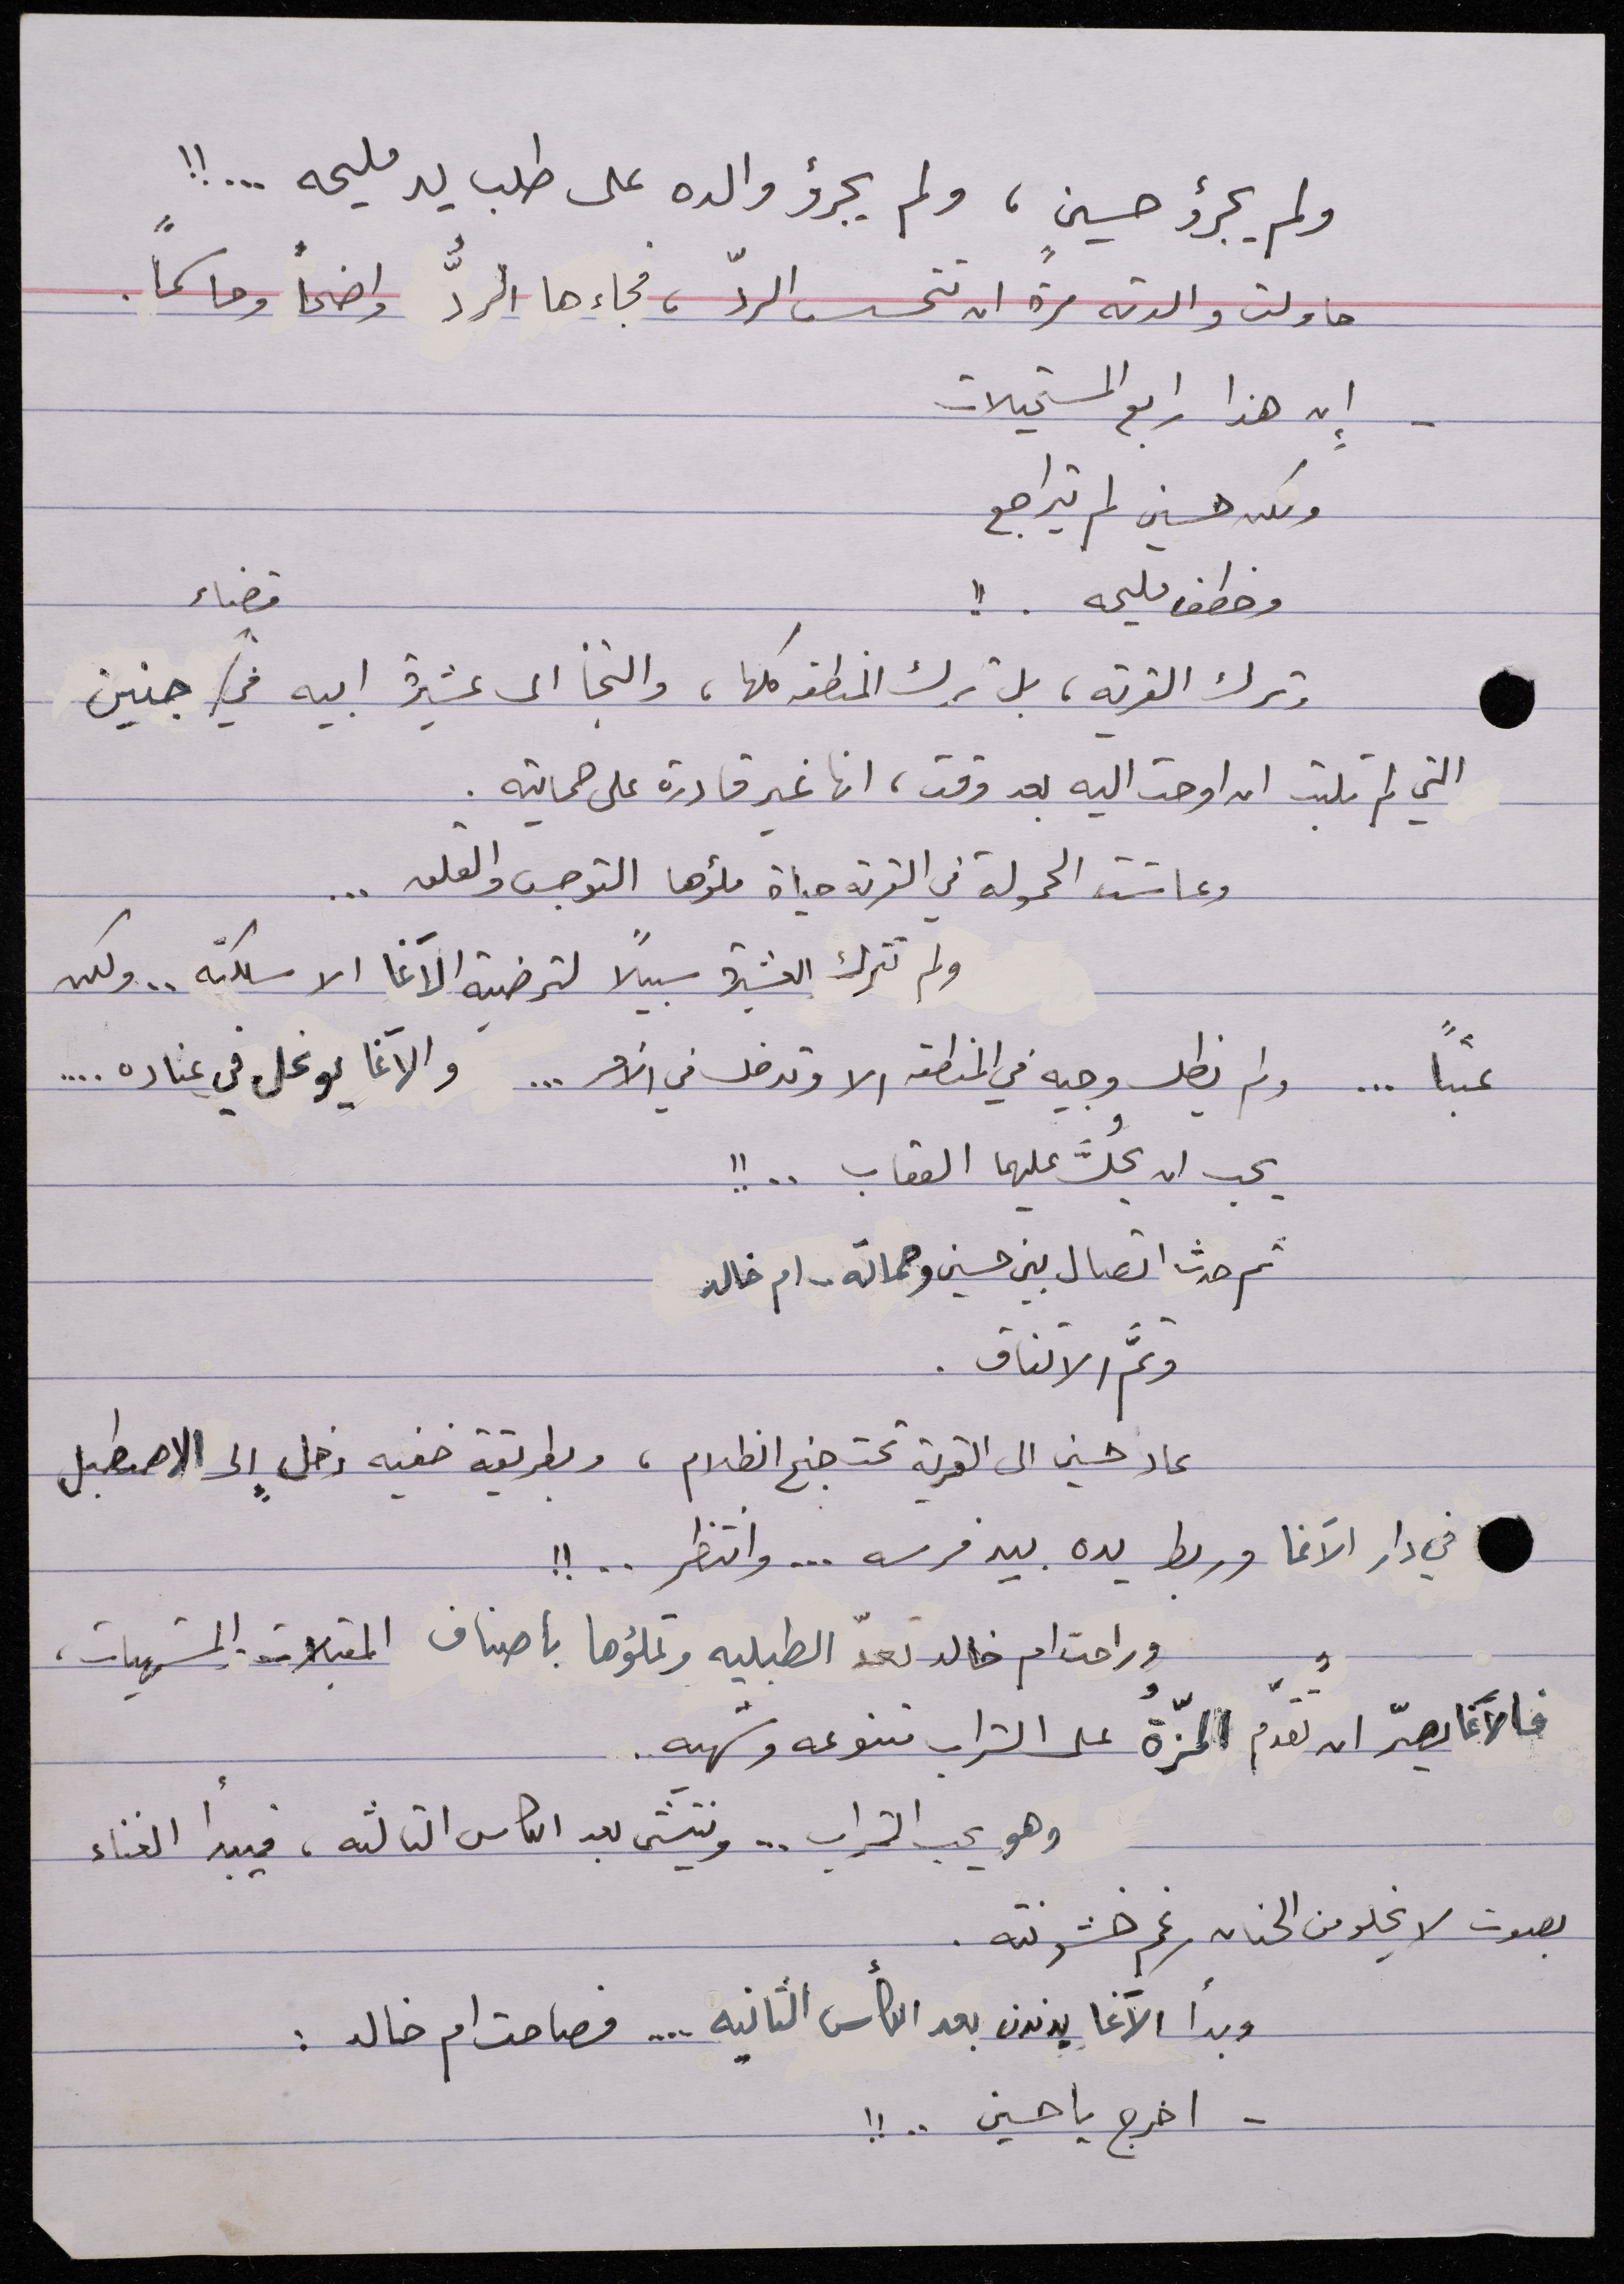 ولم يجرؤ حسين ، ولم يجرؤ والده على طلب يد مليحه ...!!
حاولت والدته مرةً ان تتحسس الردّ ، فجاءها الردُّ واضحاً وحاسماً .
- إن هذا رابع المستحيلات
ولكن حسين لم يتراجع
وخطف مليحه . !!
وترك القريه ، بل ترك المنطقه كلها ، والتجأ الى عشيرة ابيه في قضاء جنين
التي لم تلبث ان اوحت اليه بعد وقت ، انها غير قادرة على حمايته .
وعاشت الحمولة في القريه حياة ملؤها التوجس والقلق ...
ولم تترك العشيرة سبيلاً لترضية الآغا الا سلكته .. ولكن
عبثاً ... ولم يظل وجيه في المنطقه الا وتدخل في الأمر ... والآغا يوغل في عناده ....
يجب ان يحُلَّ عليهما العقاب ..!!
ثم حدث اتصال بين حسين وحماته - ام خالد
وتمَّ الاتفاق .
عاد حسين الى القرية تحت جنح الظلام ، وبطريقة خفيه دخل إلى الاصطبل
في دار الآغا وربط يده بيد فرسه ... وانتظر ..!!
وراحت ام خالد تعدّ الطبليه وتملؤها بأصناف المقبلات - المشهيات ،
فالآغا يصرّ ان تُقدّم المزّةُ على الشراب متنوعه وشهيه .
وهو يحب الشراب ... وينتشي بعد الكاس الثالثه ، فيبدأ الغناء
بصوت لا يخلو من الحنان رغم خشونته .
وبدأ الآغا يدندن بعد الكأس الثانيه .... فصاحت ام خالد :
- اخرج يا حسين ..!!